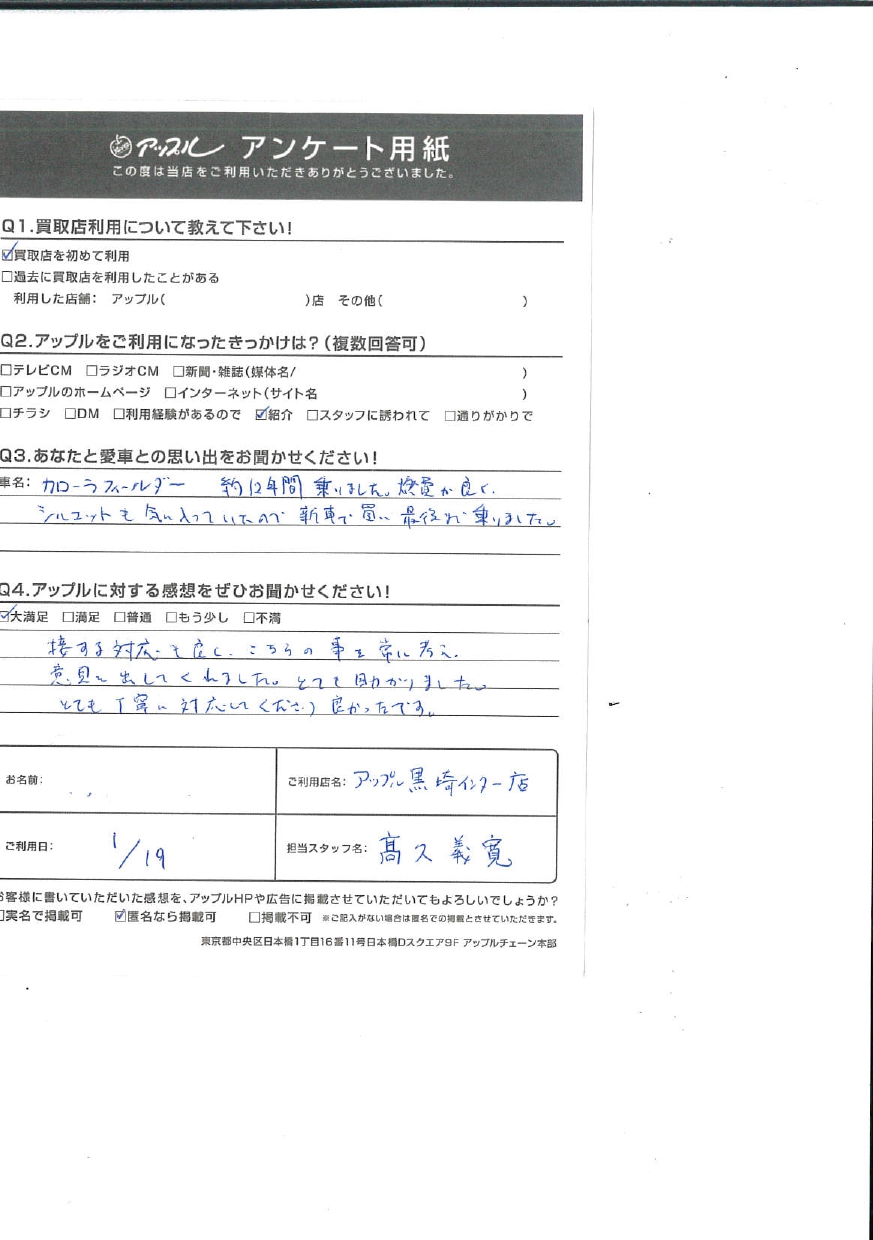 アップル アンケート用紙
この度は当店をご利用いただきありがとうございました。
Q1.買取店利用について教えて下さい!
☑買取店を初めて利用
□過去に買取店を利用したことがある
利用した店舗: アップル( )店 その他( )
Q2.アップルをご利用になったきっかけは?(複数回答可)
□テレビCM □ラジオCM □新聞・雑誌(媒体名/ )
□アップルのホームページ □インターネット(サイト名 )
□チラシ □DM □利用経験があるので ☑紹介 □スタッフに誘われて □通りがかりで
Q3.あなたと愛車との思い出をお聞かせください!
車名: カローラフィールダー 約12年間乗りました。燃費が良く、
シルエットも気に入っていたので新車で買い最後まで乗りました。
Q4.アップルに対する感想をぜひお聞かせください!
☑大満足 □満足 □普通 □もう少し □不満
接する対応も良く、こちらの事を常に考え、
意見を出してくれました。とても助かりました。
とても丁寧に対応してくださり良かったです。
お名前:
ご利用店名: アップル黒埼インター店
ご利用日: 1/19
担当スタッフ名: 髙久義寛
お客様に書いていただいた感想を、アップルHPや広告に掲載させていただいてもよろしいでしょうか?
□実名で掲載可 ☑匿名なら掲載可 □掲載不可 ※ご記入がない場合は匿名での掲載とさせていただきます。
東京都中央区日本橋1丁目16番11号日本橋Dスクエア9F アップルチェーン本部